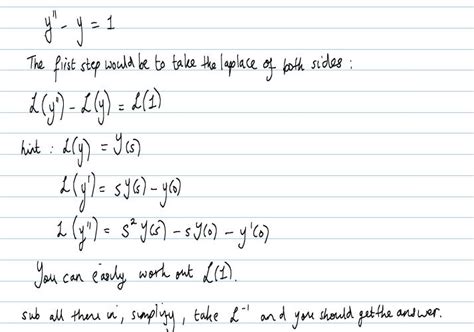 y'' - y = 1
The first step would be to take the laplace of both sides :
ℒ(y'') - ℒ(y) = ℒ(1)
hint : ℒ(y) = Y(s)
ℒ(y') = sY(s) - y(0)
ℒ(y'') = s² Y(s) - sY(0) - y'(0)
You can easily work out ℒ(1).
sub all these in, simplify, take ℒ⁻¹ and you should get the answer.